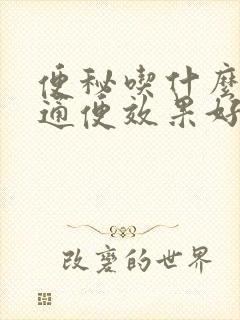 便秘喫什麼
通便效果好
改變的世界